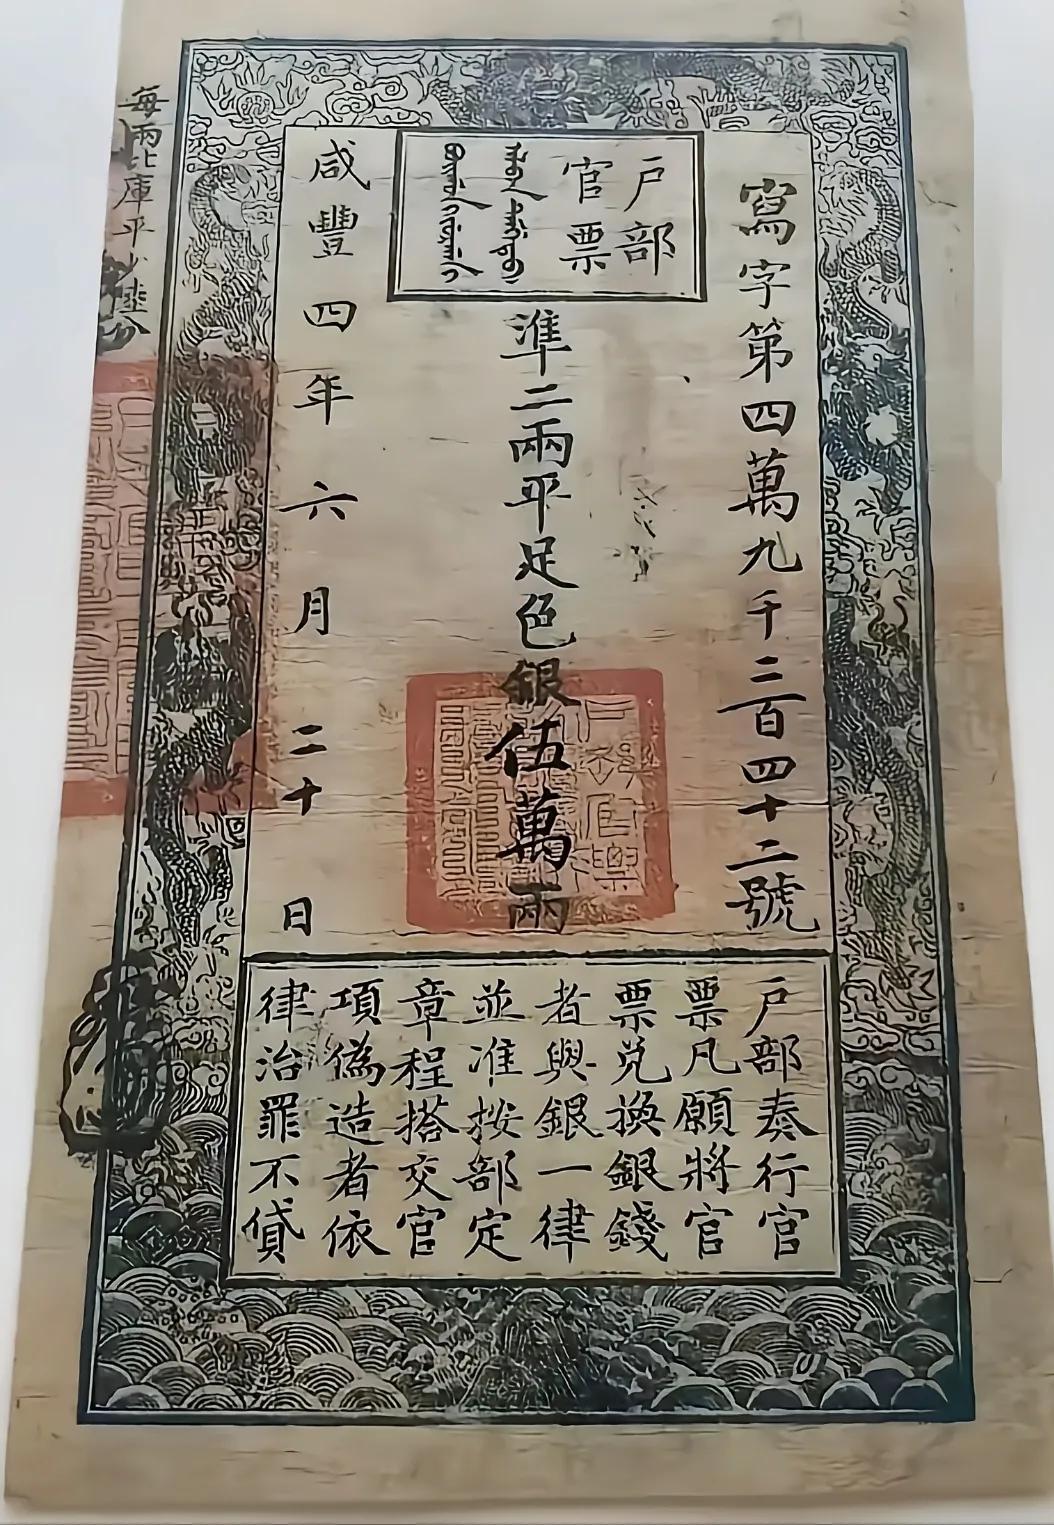 戶部
官票
寫字第四萬九千三百四十二號
準二兩平足色銀伍萬兩
咸豐四年六月二十日
每兩比庫平少陸分
戶部奏行官
票凡願將官
票兌換銀錢
者與銀一律
並准按部定
章程搭交官
項偽造者依
律治罪不貸